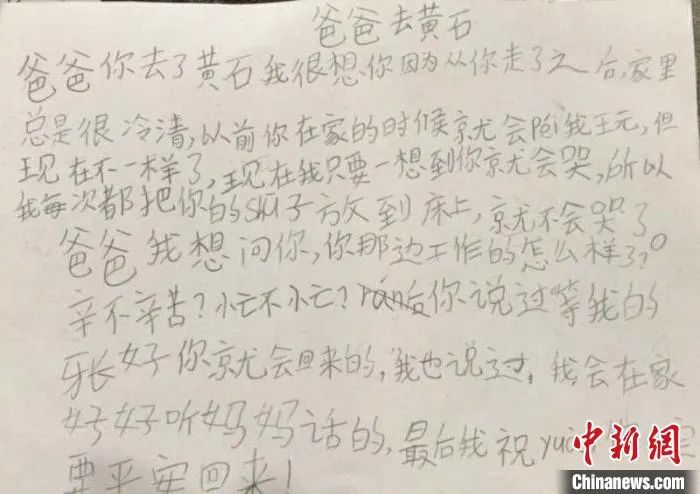 爸爸去黄石
爸爸你去了黄石我很想你因为从你走了之后，家里
总是很冷清，以前你在家的时候就会pei我玩，但
现在不一样了，现在我只要一想到你就会哭，所以
我每次都把你的shu子放到床上，就不会哭了
爸爸我想问你，你那边工作的怎么样了？
辛不辛苦？忙不忙？rán后你说过等我的
牙长好你就会回来的，我也说过，我会在家
好好听妈妈话的，最后我祝yuàn
要平安回来！
中新网
Chinanews.com